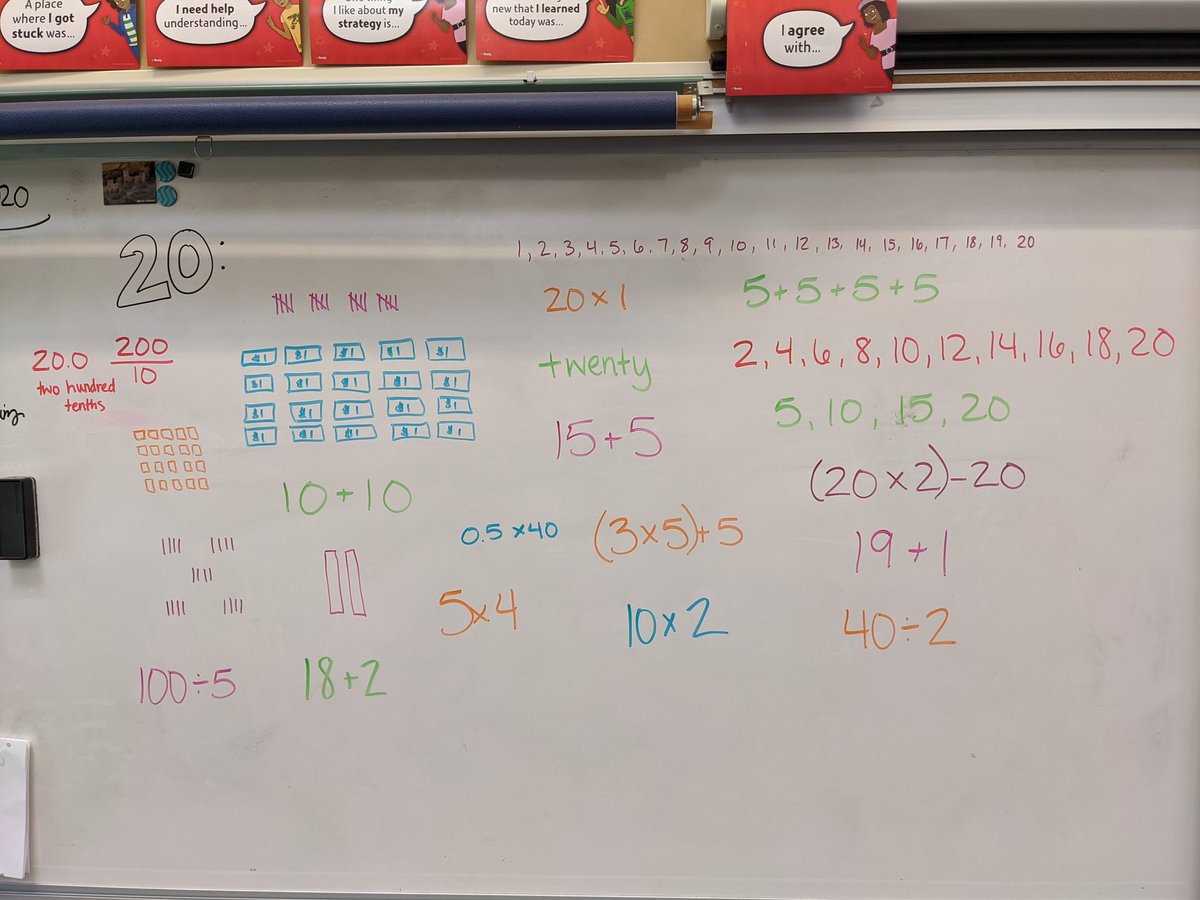 A place
where I got
stuck was...
I need help
understanding...
I like about my
strategy is...
new that I learned
today was...
I agree
with...
20
20:
1, 2, 3, 4, 5, 6, 7, 8, 9, 10, 11, 12, 13, 14, 15, 16, 17, 18, 19, 20
20 × 1
5 + 5 + 5 + 5
20.0
200
10
two hundred
tenths
$1 $1 $1 $1 $1
$1 $1 $1 $1 $1
$1 $1 $1 $1 $1
$1 $1 $1 $1 $1
twenty
2, 4, 6, 8, 10, 12, 14, 16, 18, 20
5, 10, 15, 20
15 + 5
(20 × 2) - 20
10 + 10
0.5 × 40
(3 × 5) + 5
19 + 1
5 × 4
10 × 2
40 ÷ 2
100 ÷ 5
18 + 2